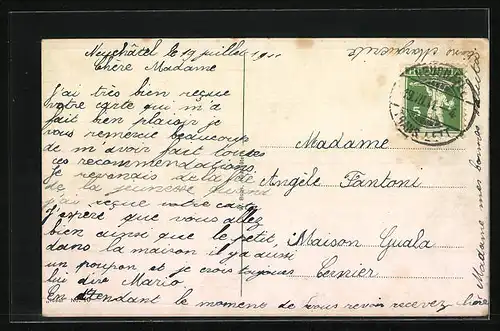 Neuchâtel le 19 juillet 19
Chère Madame
J'ai très bien reçue
votre carte qui m'a
fait bien plaisir je
vous remercie beaucoups
de m'avoir fait toutes
ces recommendations.
Je revenais de la
de la jeunesse quand
j'ai reçue votre carte
J'espère que vous allez
bien ainsi que le petit,
dans la maison il y a aussi
un poupon et je crois toujours
lui dire Mario.
En attendant le moment de vous revoir recevez chère
Madame mes bonnes
Marguerite
Madame
Angèle Fantoni
Maison Guala
Cernier